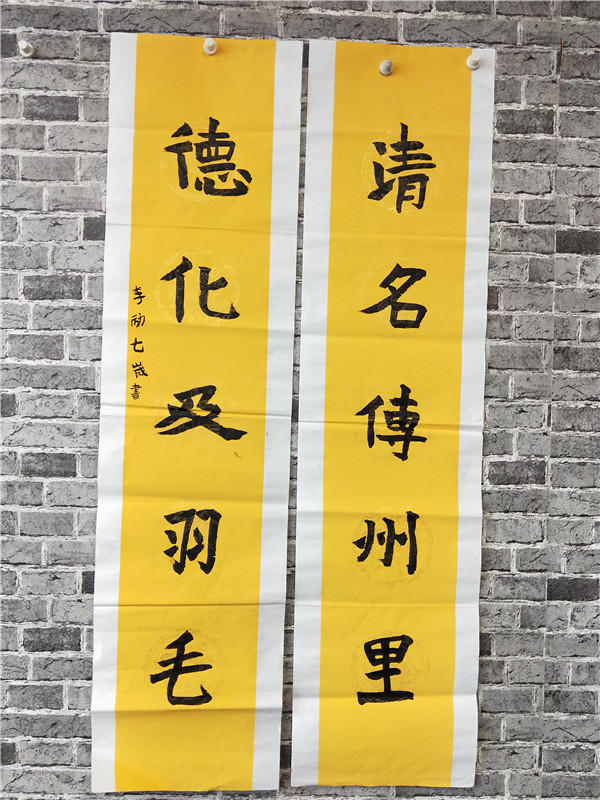 清名傳州里
德化及羽毛
李勋七歲書